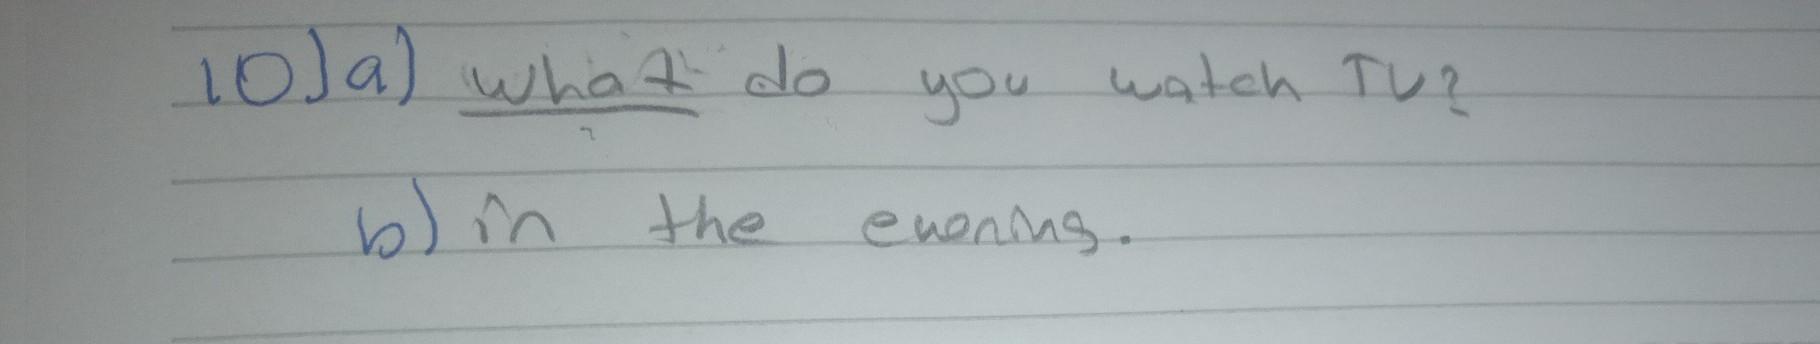 10) a) what do you watch TV?
b) in the evening.